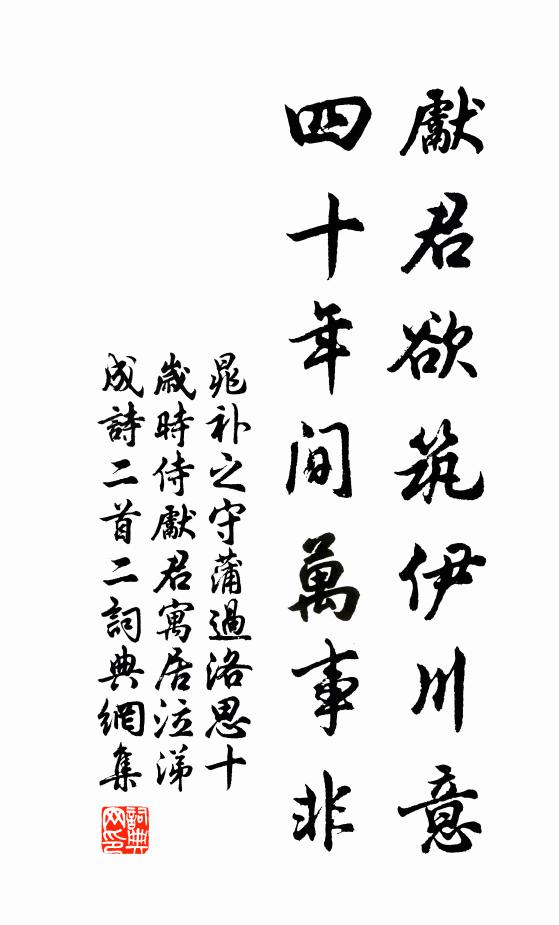 獻君欲筑伊川意
四十年間萬事非
晁补之守蒲過洛思十
歲時侍獻君寓居泣涕
成詩二首二詞典網集
詞典
网印